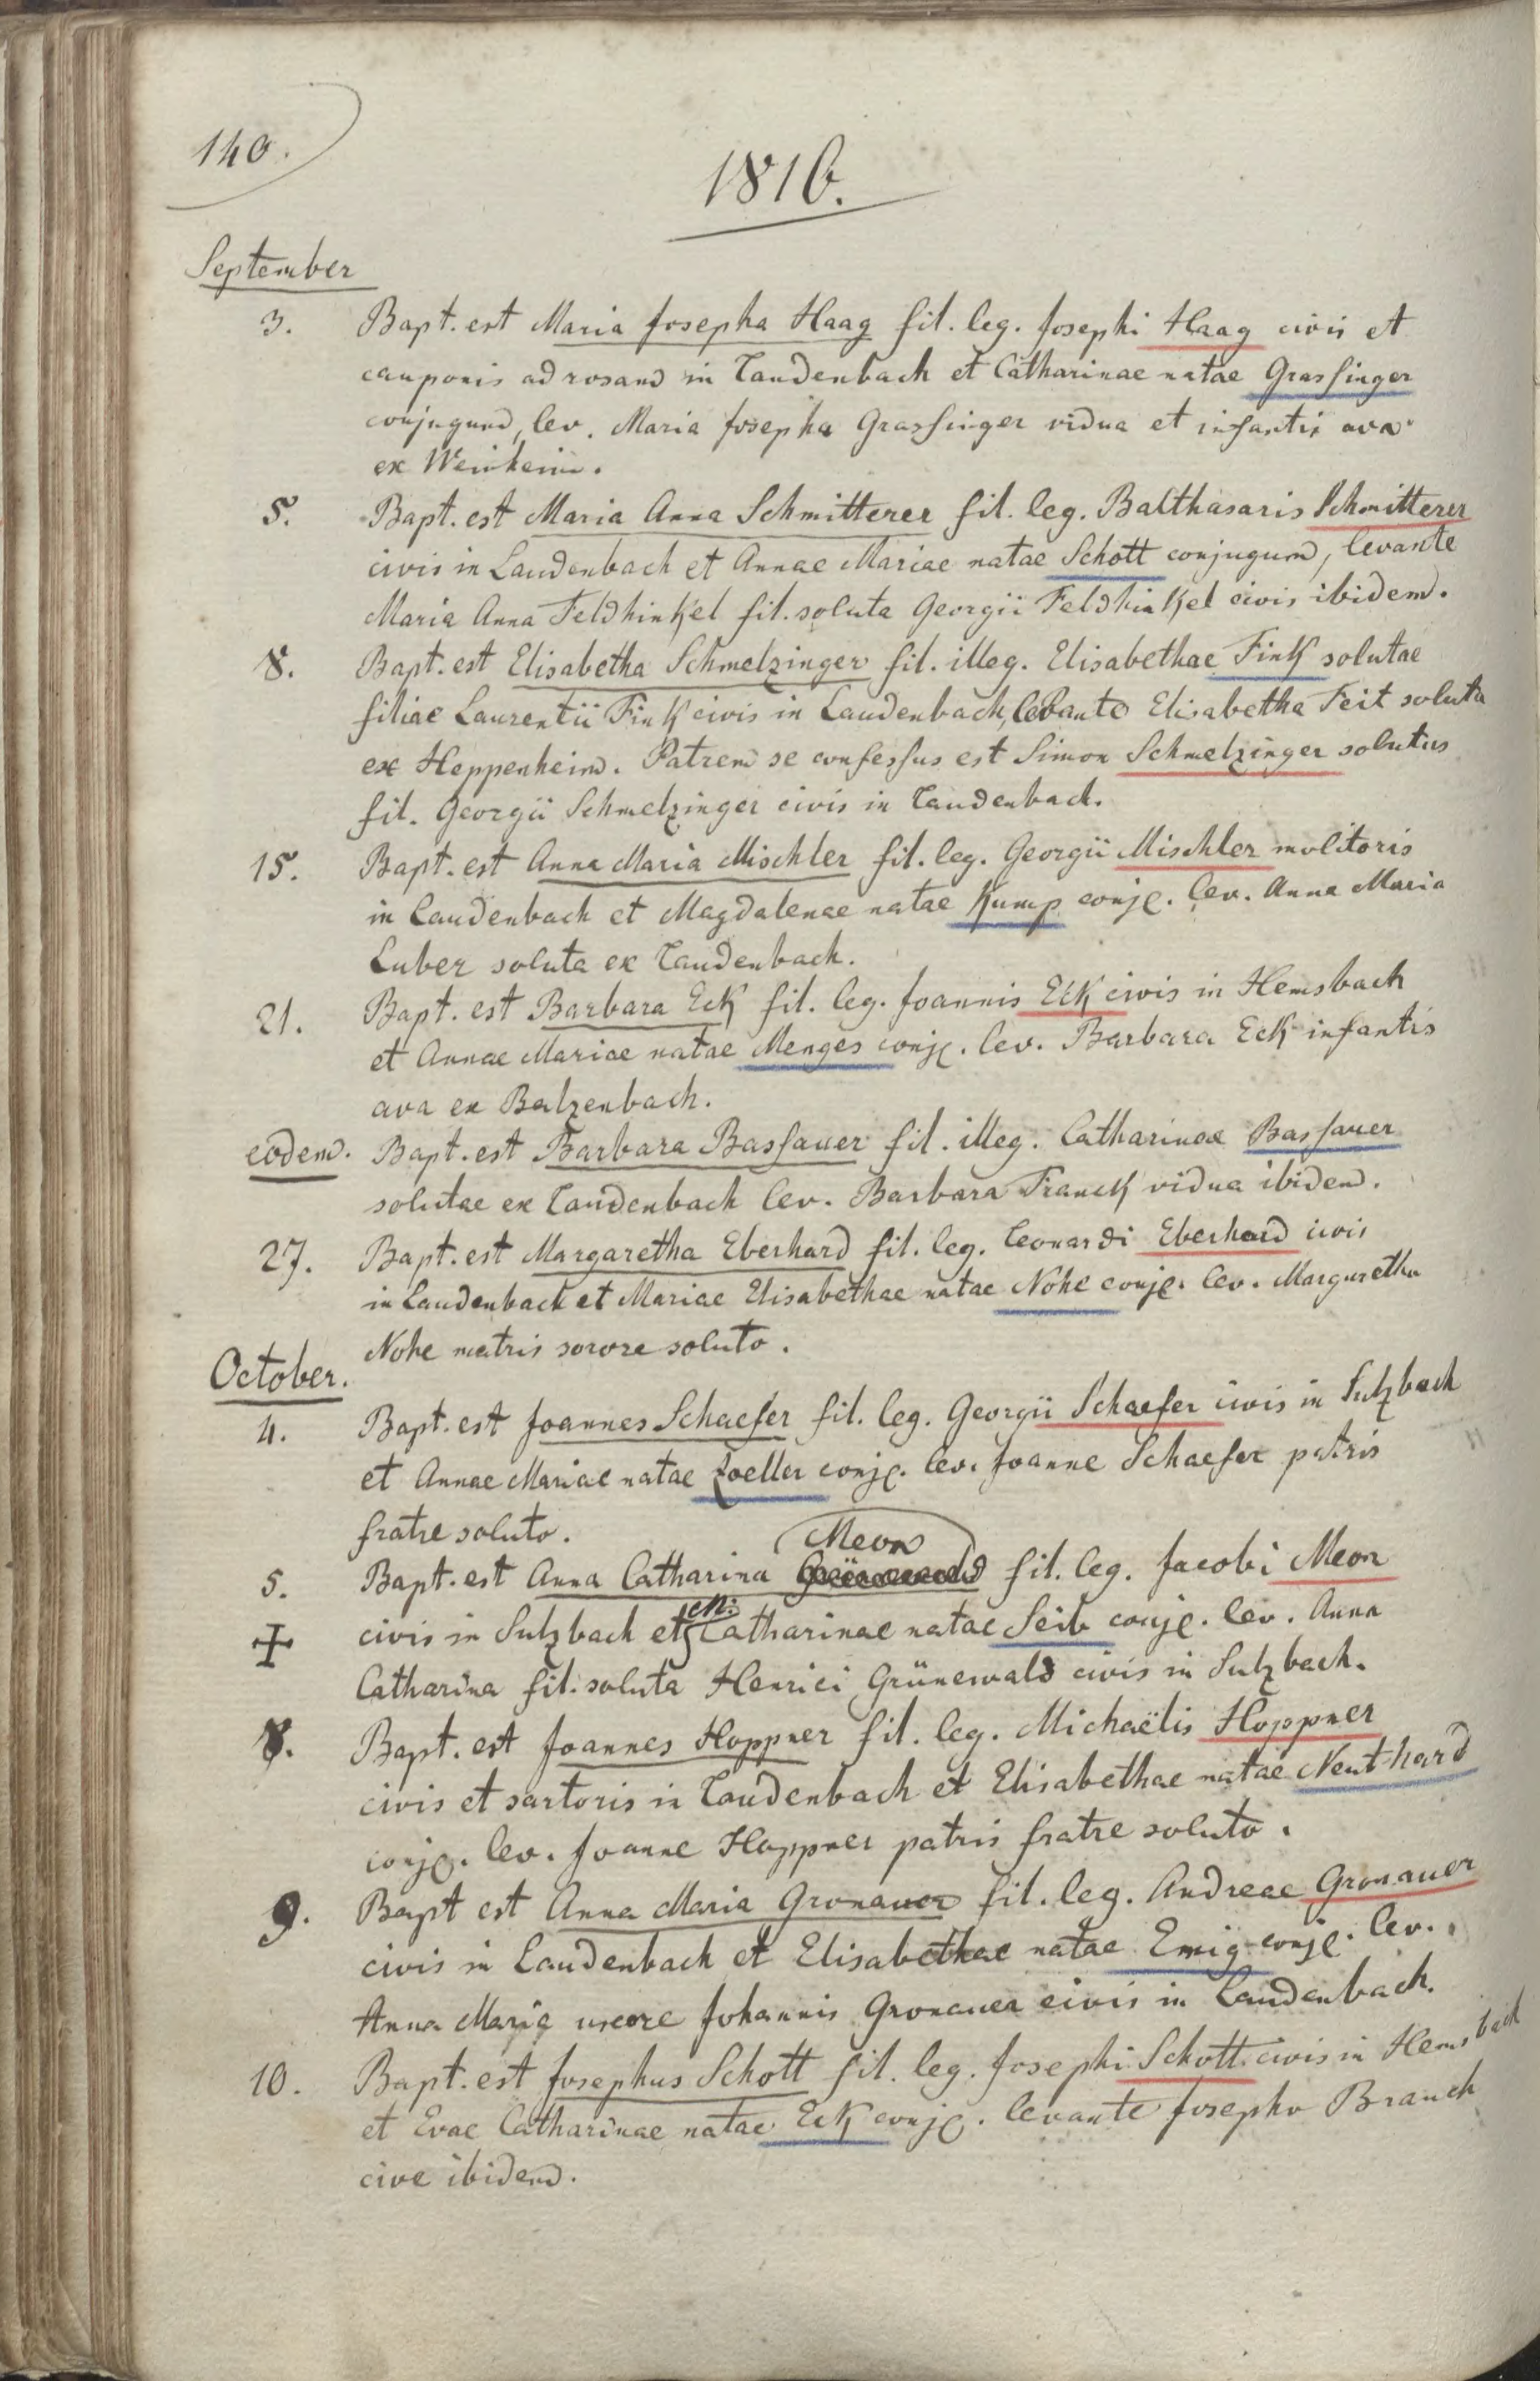 140.
1816.
September
3. Bapt. est Maria Josepha Haag fil. leg. Josephi Haag civis et
cauponis ad rosam in Laudenbach et Catharinae natae Grassinger
conjugum, lev. Maria Josepha Grassinger vidua et infantis ava
ex Weinheim.
5. Bapt. est Maria Anna Schmitterer fil. leg. Balthasaris Schmitterer
civis in Laudenbach et Annae Mariae natae Schott conjugum, levante
Maria Anna Feldhinkel fil. soluta Georgii Feldhinkel civis ibidem.
8. Bapt. est Elisabetha Schmelzinger fil. illeg. Elisabethae Fink solutae
filiae Laurentii Fink civis in Laudenbach, levante Elisabetha Feit soluta
ex Heppenheim. Patrem se confessus est Simon Schmelzinger solutus
fil. Georgii Schmelzinger civis in Laudenbach.
15. Bapt. est Anna Maria Mischler fil. leg. Georgii Mischler molitoris
in Laudenbach et Magdalenae natae Kump conjg. lev. Anna Maria
Luber soluta ex Laudenbach.
21. Bapt. est Barbara Eck fil. leg. Joannis Eck civis in Hemsbach
et Annae Mariae natae Menges conjg. lev. Barbara Eck infantis
ava ex Balzenbach.
eodem. Bapt. est Barbara Bassauer fil. illeg. Catharinae Bassauer
solutae ex Laudenbach lev. Barbara Franck vidua ibidem.
27. Bapt. est Margaretha Eberhard fil. leg. Leonardi Eberhard civis
in Laudenbach et Mariae Elisabethae natae Nohe conjg. lev. Margaretha
Nohe matris sorore soluta.
October.
4. Bapt. est Joannes Schaefer fil. leg. Georgii Schaefer civis in Sulzbach
et Annae Mariae natae Zoeller conjg. lev. Joanne Schaefer patris
fratre soluto.
Meon
5. Bapt. est Anna Catharina Grünewald fil. leg. Jacobi Meon
civis in Sulzbach et M: Catharinae natae Seib conjg. lev. Anna
Catharina fil. soluta Henrici Grünewald civis in Sulzbach.
8. Bapt. est Joannes Hoppner fil. leg. Michaëlis Hoppner
civis et sartoris in Laudenbach et Elisabethae natae Neuthard
conjg. lev. Joanne Hoppner patris fratre soluto.
9. Bapt est Anna Maria Gronauer fil. leg. Andreae Gronauer
civis in Laudenbach et Elisabethae natae Emig conjg. lev.
Anna Maria uxore Johannis Gronauer civis in Laudenbach.
10. Bapt. est Josephus Schott fil. leg. Josephi Schott civis in Hemsbach
et Evae Catharinae natae Eck conjg. levante Josepho Brauch
cive ibidem.